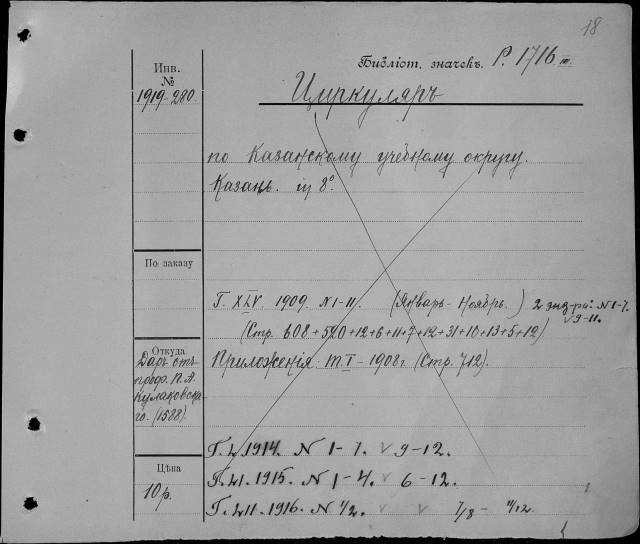 18
Библіот. значекъ. P. 1716 III.
Инв.
№
1919-280.
Циркуляръ
по Казанскому учебному округу.
Казань. in 8°.
По заказу
Г. XLV 1909. N 1-11. (Январь-Ноябрь.) 2 экз-ра: N 1-7.
v 9-11.
(Стр. 608+520+12+6+11+7+12+31+10+13+5+12)
Откуда
Даръ отъ
проф. П. А.
Кулаковска-
го. (1588).
Приложенія: т. I - 1908 г. (Стр. 712).
Г. L. 1914. N 1-7. v 9-12.
Цѣна
10 р.
Г. LI. 1915. N 1-4. v 6-12.
Г. LII. 1916. N 1/2. v v 7/8 - 11/12.